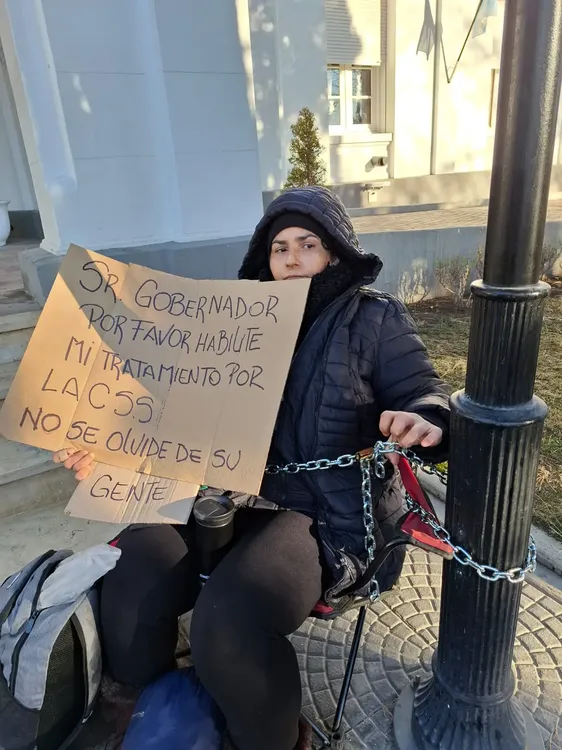 SR. GOBERNADOR
POR FAVOR HABILITE
MI TRATAMIENTO POR
LA CSS
NO SE OLVIDE DE SU
GENTE